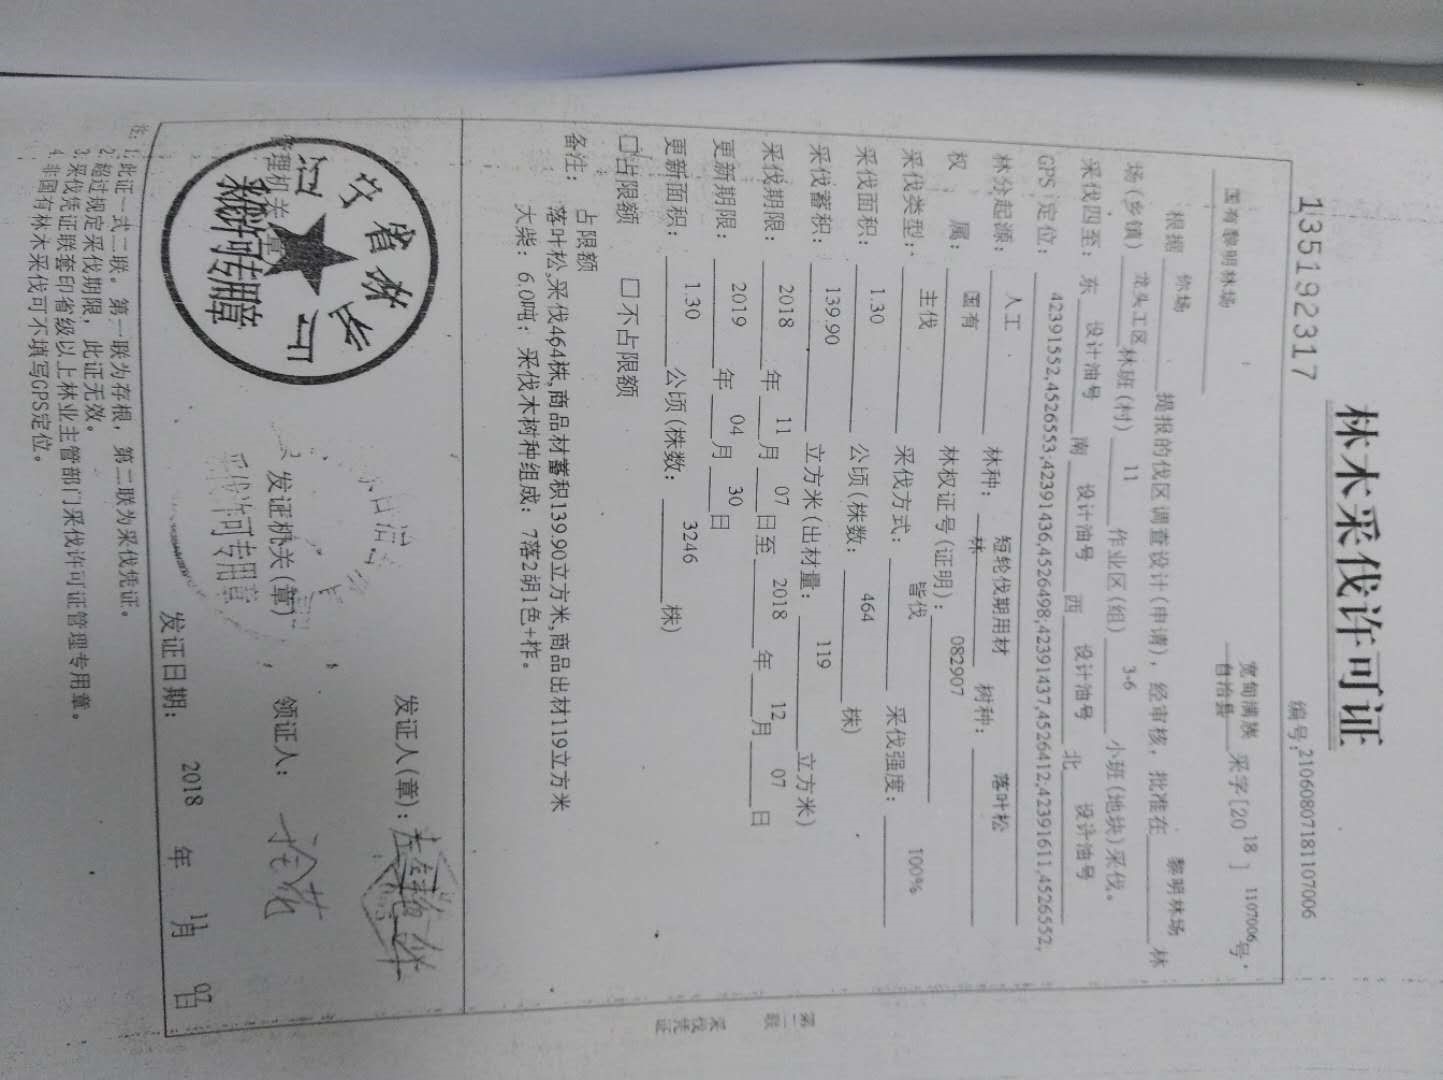 林木采伐许可证
13519232317
编号:21060807181107006
宽甸满族
自治县 采字[2018] 1107006号
国有黎明林场
根据 你场 提报的伐区调查设计(申请),经审核,批准在 黎明林场 林
场(乡镇) 龙头工区 林班(村) 11 作业区(组) 3-6 小班(地块)采伐。
采伐四至: 东 设计油号 南 设计油号 西 设计油号 北 设计油号
GPS定位: 42391552,4526553,42391436,4526498,42391437,4526412,42391611,4526552,
林分起源: 人工 林种: 短轮伐期用材林 树种: 落叶松
权 属: 国有 林权证号(证明): 082907
采伐类型: 主伐 采伐方式: 皆伐 采伐强度: 100%
采伐面积: 1.30 公顷(株数: 464 株)
采伐蓄积: 139.90 立方米(出材量: 119 立方米)
采伐期限: 2018 年 11 月 07 日至 2018 年 12 月 07 日
更新期限: 2019 年 04 月 30 日
更新面积: 1.30 公顷(株数: 3246 株)
□占限额 □不占限额
备注: 占限额
落叶松,采伐464株,商品材蓄积139.90立方米,商品出材119立方米
大柴:6.0吨; 采伐木树种组成: 7落2胡1色+柞。
发证人(章):
管理机关(章)
宁省林
采伐许可专用章
发证机关(章)
采伐许可专用章
领证人:
发证日期: 2018 年 11 月 07 日
注: 1.此证一式二联。第一联为存根,第二联为采伐凭证。
2.超过规定采伐期限,此证无效。
3.采伐凭证联套印省级以上林业主管部门采伐许可证管理专用章。
4.非国有林木采伐可不填写GPS定位。
第二联 采伐凭证